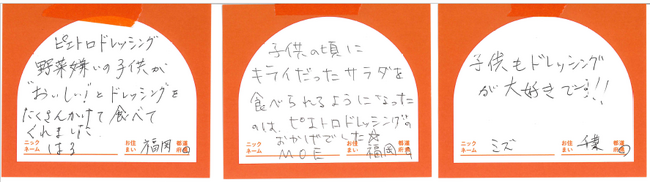 ピエトロドレッシング
野菜嫌いの子供が
"おいしい!"とドレッシングを
たくさんかけて食べて
くれました。
ニックネーム はる お住まい 福岡 都道府県
子供の頃に
キライだったサラダを
食べられるようになった
のは、ピエトロドレッシングの
おかげでした☆
ニックネーム MOE お住まい 福岡 都道府県
子供もドレッシング
が大好きです!!
ニックネーム ミズ お住まい 千葉 都道府県